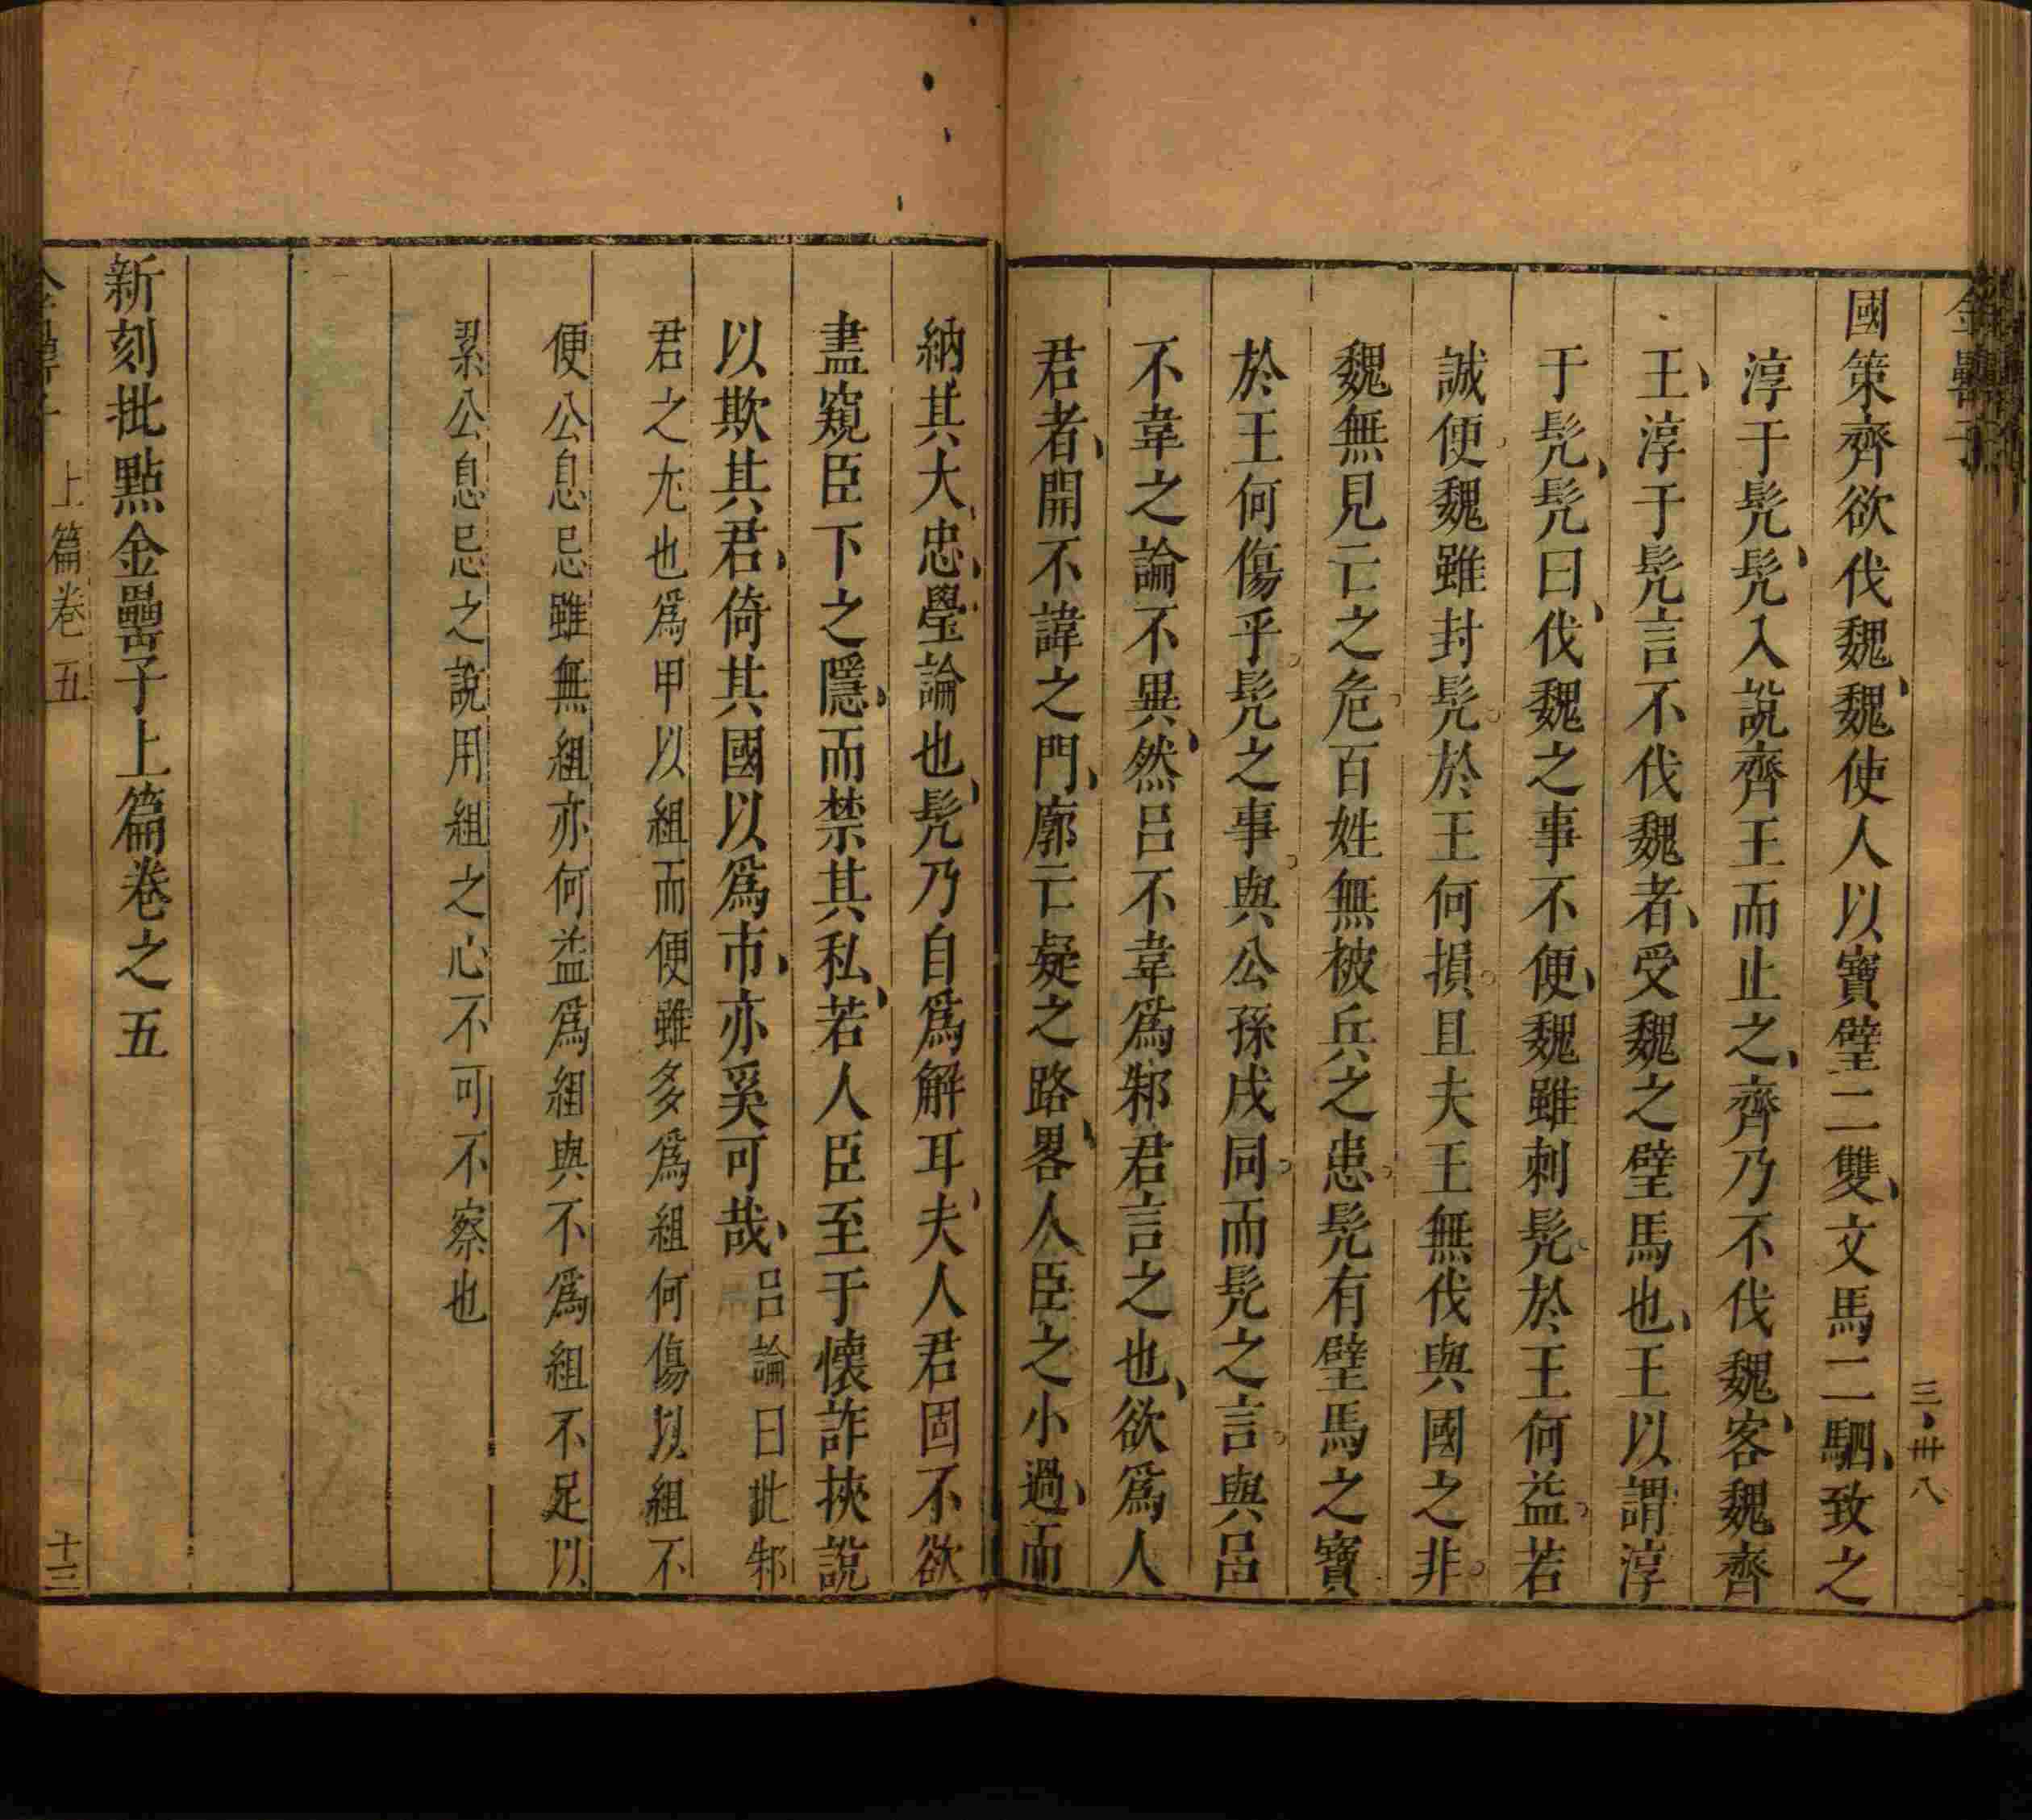 金罍子
三卅八
國策齊欲伐魏魏使人以寶璧二雙文馬二駟致之
淳于髡髡入說齊王而止之齊乃不伐魏客魏齊
王淳于髡言不伐魏者受魏之璧馬也王以謂淳
于髡髡曰伐魏之事不便魏雖刺髡於王何益若
誠便魏雖封髡於王何損且夫王無伐與國之非
魏無見亡之危百姓無被兵之患髡有璧馬之寶
於王何傷乎髡之事與公孫戌同而髡之言與呂
不韋之論不異然呂不韋為邾君言之也欲為人
君者開不諱之門廓亡疑之路畧人臣之小過而
納其大忠璺論也髡乃自為解耳夫人君固不欲
盡窺臣下之隱而禁其私若人臣至于懷詐挾說
以欺其君倚其國以為市亦奚可哉呂論曰此邾
君之尢也為甲以組而便雖多為組何傷以組不
便公息忌雖無組亦何益為組與不為組不足以
累公息忌之說用組之心不可不察也
新刻批點金罍子上篇卷之五
上篇卷五
十三